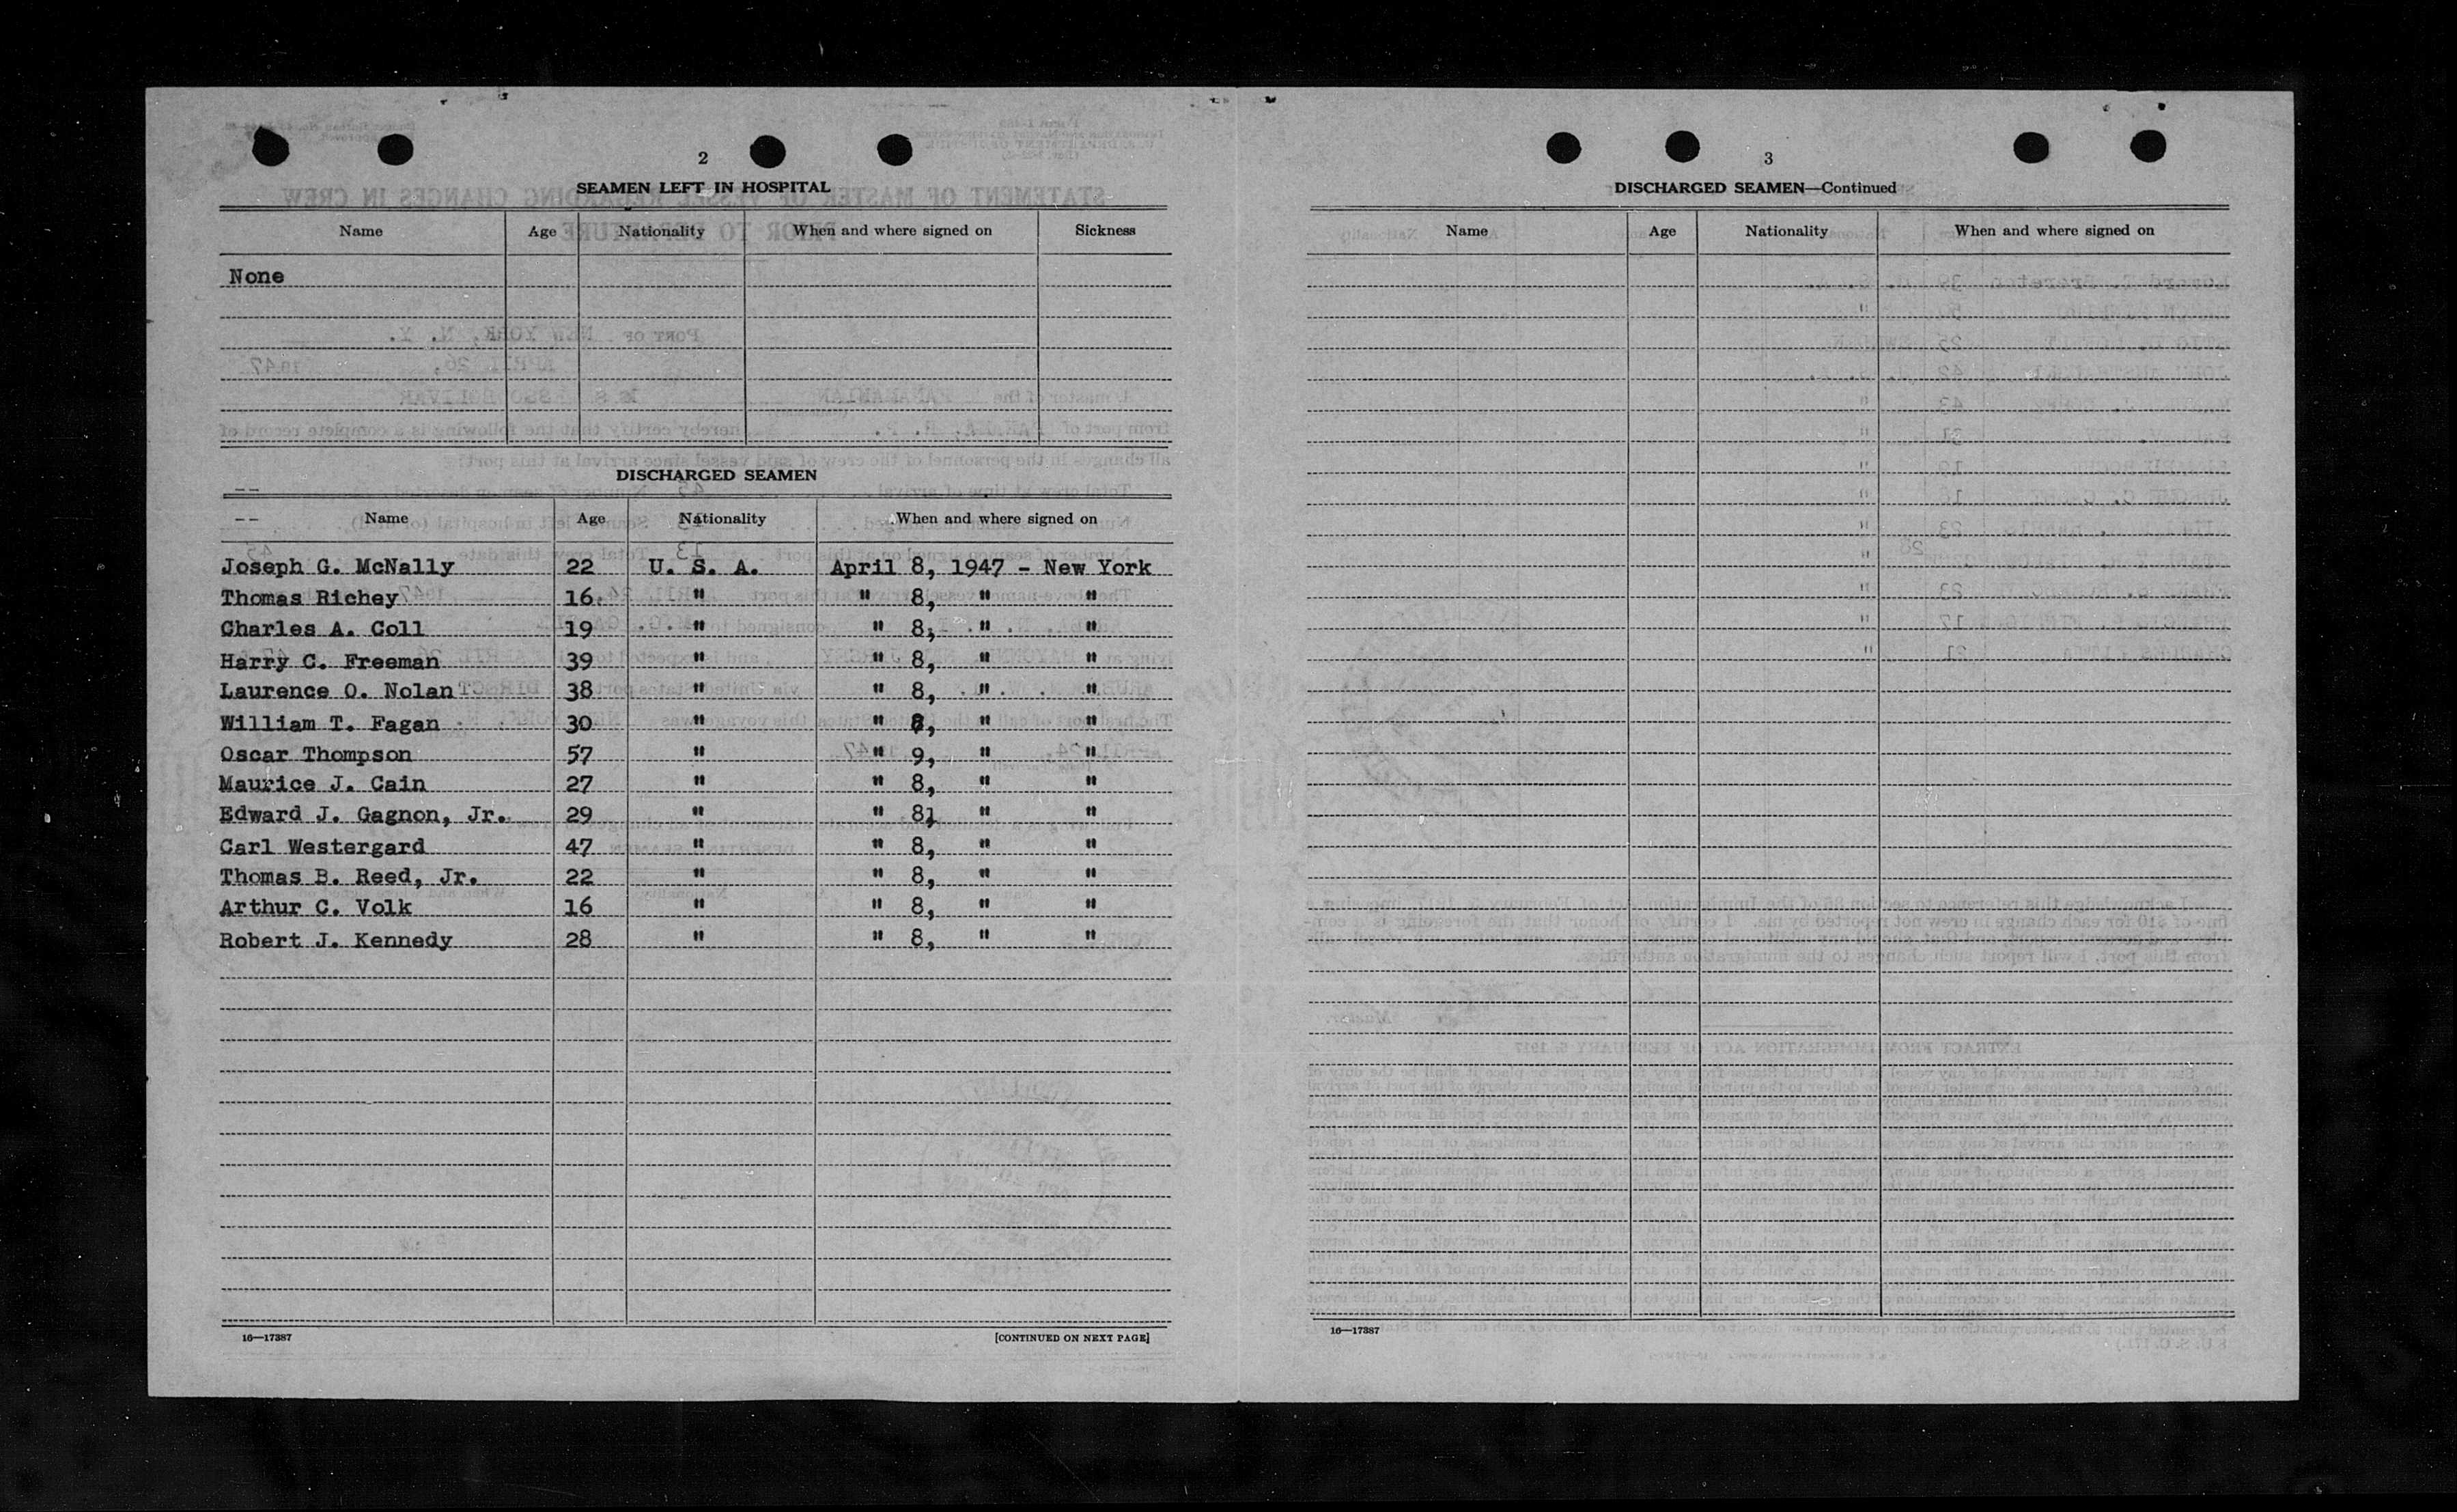 2
SEAMEN LEFT IN HOSPITAL
Name Age Nationality When and where signed on Sickness
None
DISCHARGED SEAMEN
Name Age Nationality When and where signed on
Joseph G. McNally 22 U. S. A. April 8, 1947 - New York
Thomas Richey 16 " " 8, " "
Charles A. Coll 19 " " 8, " "
Harry C. Freeman 39 " " 8, " "
Laurence O. Nolan 38 " " 8, " "
William T. Fagan 30 " " 8, " "
Oscar Thompson 57 " " 9, " "
Maurice J. Cain 27 " " 8, " "
Edward J. Gagnon, Jr. 29 " " 8, " "
Carl Westergard 47 " " 8, " "
Thomas B. Reed, Jr. 22 " " 8, " "
Arthur C. Volk 16 " " 8, " "
Robert J. Kennedy 28 " " 8, " "
16—17387 [CONTINUED ON NEXT PAGE]
3
DISCHARGED SEAMEN—Continued
Name Age Nationality When and where signed on
16—17387